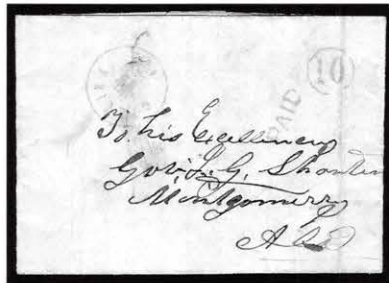 10
PAID
To his Excellency
Gov. J. G. Shorter
Montgomery
Ala